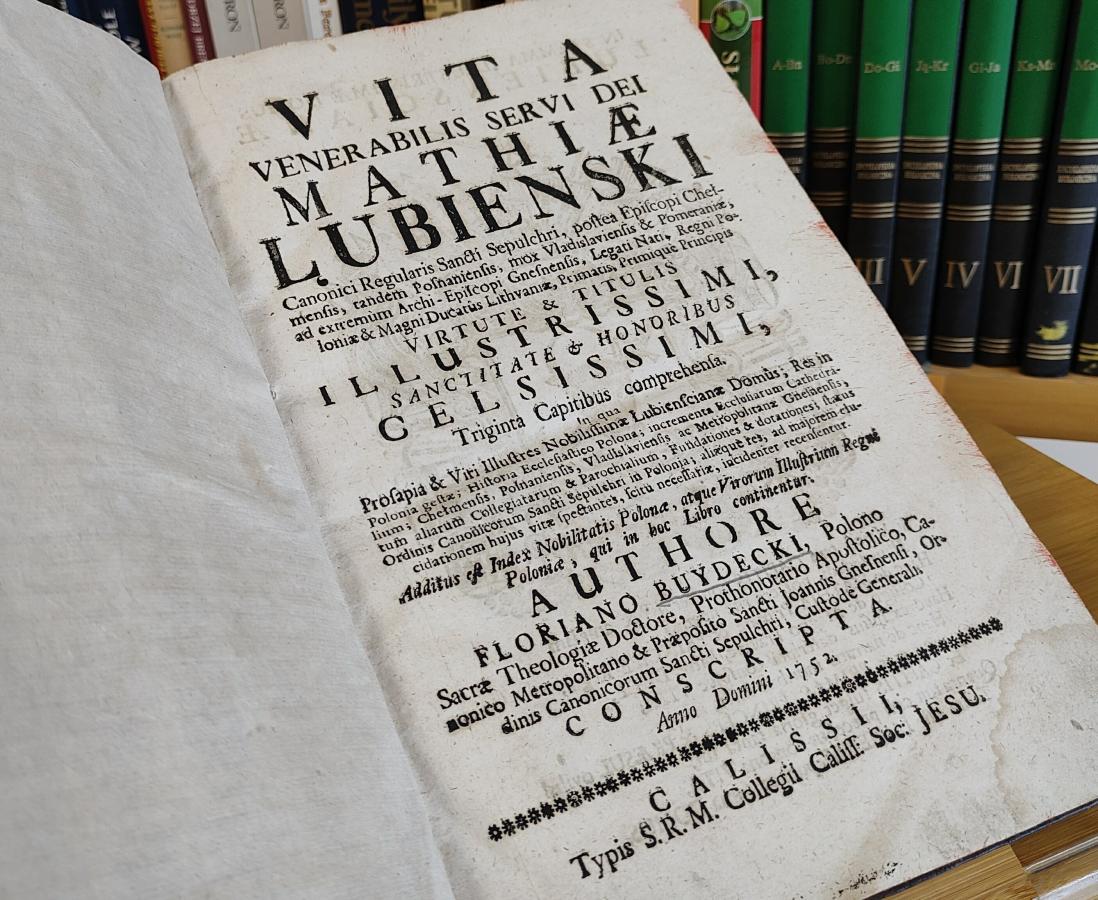 VITA
VENERABILIS SERVI DEI
MATHIÆ
LUBIENSKI
Canonici Regularis Sancti Sepulchri, poſtea Epiſcopi Chel-
menſis, tandem Poſnanienſis, mox Vladislavienſis & Pomeraniæ,
ad extremum Archi-Epiſcopi Gneſnenſis, Legati Nati, Regni Po-
loniæ & Magni Ducatûs Lithvaniæ, Primatis, Primique Principis
VIRTUTE & TITULIS
ILLUSTRISSIMI,
SANCTITATE & HONORIBUS
CELSISSIMI,
Triginta Capitibus comprehenſa.
In qua
Proſapia & Viri Illuſtres Nobiliſſimæ Lubienſcianæ Domûs; Res in
Polonia geſtæ; Hiſtoria Eccleſiaſtico Polona; incrementa Eccleſiarum Cathedra-
lium; Chelmenſis, Poſnanienſis, Vladislavienſis ac Metropolitanæ Gneſnenſis,
tum aliarum Collegiatarum & Parochialium, Fundationes & dotationes; ſtatus
Ordinis Canonicorum Sancti Sepulchri in Polonia; aliæque res, ad majorem elu-
cidationem hujus vitæ ſpectantes, ſcitu neceſſariæ, incidenter recenſentur.
Additus eſt Index Nobilitatis Polonæ, atque Virorum Illuſtrium Regni
Poloniæ, qui in hoc Libro continentur.
AUTHORE
FLORIANO BUYDECKI, Polono
Sacræ Theologiæ Doctore, Prothonotario Apoſtolico, Ca-
nonico Metropolitano & Præpoſito Sancti Joannis Gneſnenſi, Or-
dinis Canonicorum Sancti Sepulchri, Cuſtode Generali,
CONSCRIPTA.
Anno Domini 1752.
CALISSII,
Typis S.R.M. Collegii Caliſſ: Soc: JESU.
A-Bn
Bo-Dn
Do-Gi
Ją-Kr
Gi-Ja
Ks-Mn
Mo-
III
V
IV
VI
VII